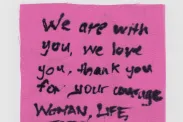 We are with
you, we love
you, thank you
for your courage
WOMAN, LIFE,